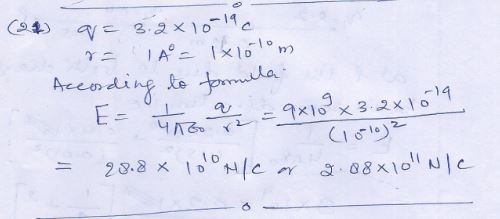 (21) q = 3.2 × 10⁻¹⁹ c
r = 1A° = 1×10⁻¹⁰ m
According to formula.
E = 1/4πε₀ q/r² = 9×10⁹ × 3.2×10⁻¹⁹/(10⁻¹⁰)²
= 28.8 × 10¹⁰ N/C or 2.88×10¹¹ N/C